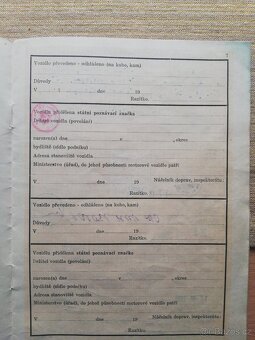 Vozidlo převedeno - odhlášeno (na koho, kam)
Důvody
V dne 19
Razítko.
Vozidlu přidělena státní poznávací značka
Držitel vozidla (povolání)
narozen(a) dne v , okres
bydliště (sídlo podniku)
Adresa stanoviště vozidla
Ministerstvo (úřad), do jehož působnosti motorové vozidlo patří
V dne 19 Náčelník doprav. inspektorátu:
Razítko.
Vozidlo převedeno - odhlášeno (na koho, kam)
Důvody
V dne 19
Razítko.
Vozidlu přidělena státní poznávací značka
Držitel vozidla (povolání)
narozen(a) dne v , okres
bydliště (sídlo podniku)
Adresa stanoviště vozidla
Ministerstvo (úřad), do jehož působnosti motorové vozidlo patří
V dne 19 Náčelník doprav. inspektorátu:
Razítko.